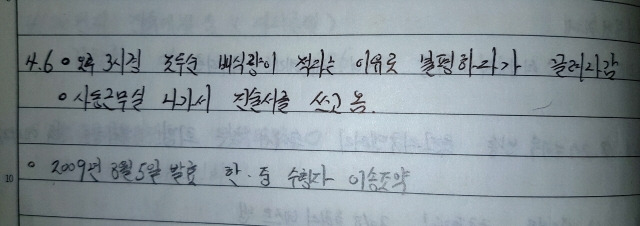 4.6 ○ 오후 3시경 조두순 배식량이 적다는 이유로 불평하다가 끌려나감
○ 사동근무실 나가서 진술서를 쓰고 옴.
○ 2009년 8월 5일 발효 한·중 수형자 이송조약
10